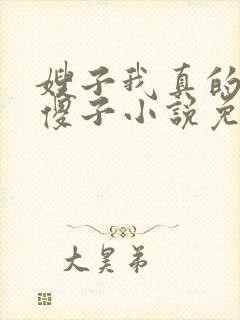 嫂子我真的
傻子小说免
大昊弟